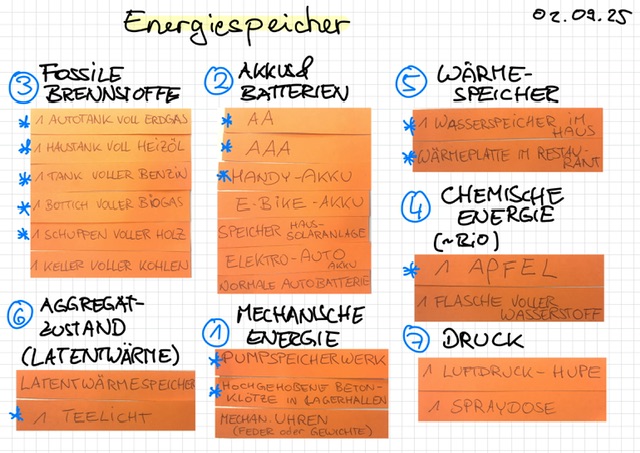 Energiespeicher
02.09.25
③ FOSSILE
BRENNSTOFFE
* 1 AUTOTANK VOLL ERDGAS
* 1 HAUSTANK VOLL HEIZÖL
* 1 TANK VOLLER BENZIN
* 1 BOTTICH VOLLER BIOGAS
* 1 SCHUPPEN VOLLER HOLZ
1 KELLER VOLLER KOHLEN
② AKKUS &
BATTERIEN
* AA
* AAA
* HANDY-AKKU
E-BIKE-AKKU
SPEICHER HAUS-
SOLARANLAGE
ELEKTRO-AUTO
AKKU
NORMALE AUTOBATTERIE
⑤ WÄRME-
SPEICHER
* 1 WASSERSPEICHER IM
HAUS
* WÄRMEPLATTE IM RESTAU-
RANT
④ CHEMISCHE
ENERGIE
(~BIO)
* 1 APFEL
1 FLASCHE VOLLER
WASSERSTOFF
⑥ AGGREGAT-
ZUSTAND
(LATENTWÄRME)
LATENTWÄRMESPEICHER
* 1 TEELICHT
① MECHANISCHE
ENERGIE
* PUMPSPEICHERWERK
* HOCHGEHOBENE BETON-
KLÖTZE IN LAGERHALLEN
MECHAN. UHREN
(FEDER oder GEWICHTE)
⑦ DRUCK
1 LUFTDRUCK-HUPE
1 SPRAYDOSE